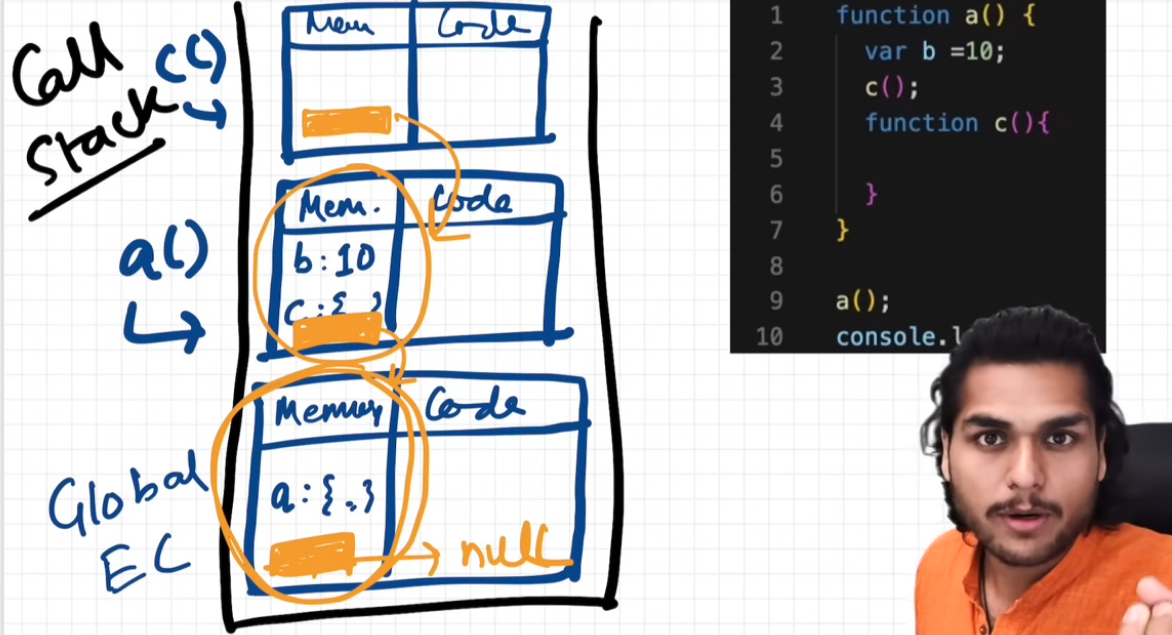 Call
Stack
c()
Mem
Code
a()
Mem.
Code
b : 10
c : {
Global
EC
Memory
Code
a : { . }
null
1 function a() {
2 var b =10;
3 c();
4 function c(){
5
6 }
7 }
8
9 a();
10 console.l